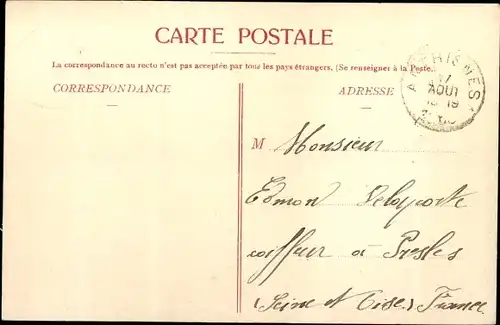 CARTE POSTALE
La correspondance au recto n'est pas acceptée par tous les pays étrangers. (Se renseigner à la Poste.)
CORRESPONDANCE
ADRESSE
ANTHISNES
17
AOUT
18-19
M Monsieur
Edmond Delaporte
coiffeur à Presles
(Seine et Oise) France